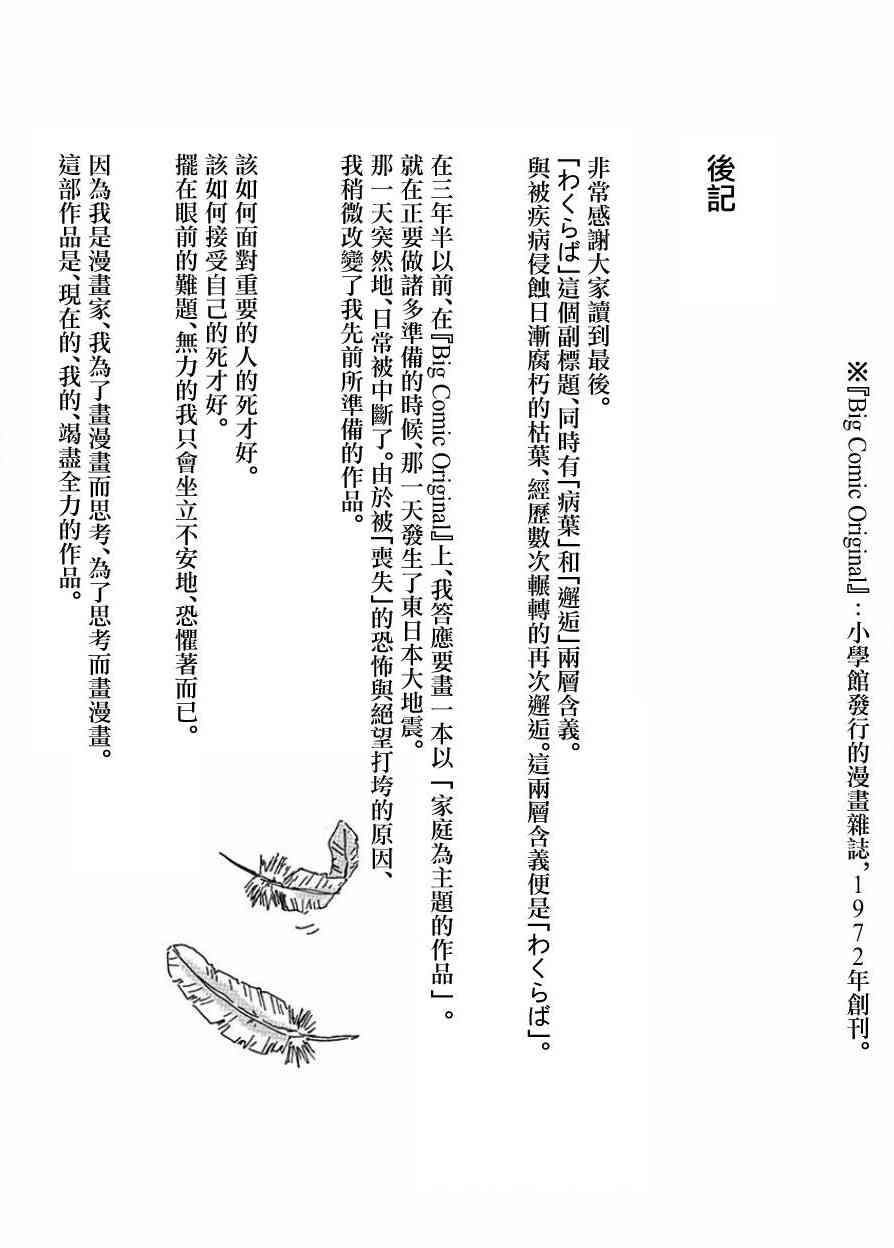 ※『Big Comic Original』：小學館發行的漫畫雜誌，1972年創刊。
後記
非常感謝大家讀到最後。
「わくらば」這個副標題、同時有「病葉」和「邂逅」兩層含義。
與被疾病侵蝕日漸腐朽的枯葉、經歷數次輾轉的再次邂逅。這兩層含義便是「わくらば」。
在三年半以前、在『Big Comic Original』上、我答應要畫一本以「家庭為主題的作品」。
就在正要做諸多準備的時候、那一天發生了東日本大地震。
那一天突然地、日常被中斷了。由於被「喪失」的恐怖與絕望打垮的原因、
我稍微改變了我先前所準備的作品。
該如何面對重要的人的死才好。
該如何接受自己的死才好。
擺在眼前的難題、無力的我只會坐立不安地、恐懼著而已。
因為我是漫畫家、我為了畫漫畫而思考、為了思考而畫漫畫。
這部作品是、現在的、我的、竭盡全力的作品。